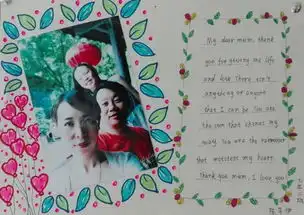 My dear mum, thank
you for giving me life
and love. There isn't
anything or anyone
that I can be. You are
the sun that shines my
way. You are the rainwater
that moistens my heart.
Thank you mum, I love you